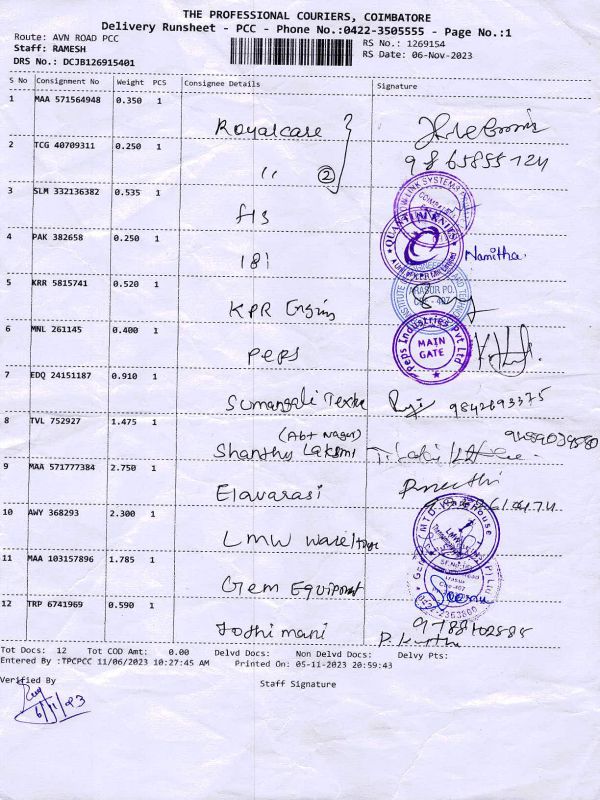 THE PROFESSIONAL COURIERS, COIMBATORE
Delivery Runsheet - PCC - Phone No.:0422-3505555 - Page No.:1
Route: AVN ROAD PCC
RS No.: 1269154
Staff: RAMESH
RS Date: 06-Nov-2023
DRS No.: DCJB126915401
S No Consignment No Weight PCS Consignee Details Signature
1 MAA 571564948 0.350 1 Royalcare
9865855124
2 TCG 40709311 0.250 1 " 2
3 SLM 332136382 0.535 1
4 PAK 382658 0.250 1 181 QUANTUM KNITS Namitha
5 KRR 5815741 0.520 1 KPR Engin ARASUR PO. 407
6 MNL 261145 0.400 1 Peps Peps Industries Pvt Ltd MAIN GATE
7 EDQ 24151187 0.910 1 Sumangali 9842693375
8 TVL 752927 1.475 1 (Abt Nagar) Shanthy Laksmi
9 MAA 571777384 2.750 1 Elavarasi
10 AWY 368293 2.300 1 LMW
11 MAA 103157896 1.785 1 Gem Equipment
12 TRP 6741969 0.590 1 Jothimani
Tot Docs: 12 Tot COD Amt: 0.00 Delvd Docs: Non Delvd Docs: Delvy Pts:
Entered By :TPCPCC 11/06/2023 10:27:45 AM Printed On: 05-11-2023 20:59:43
Verified By
Staff Signature
6/11/23